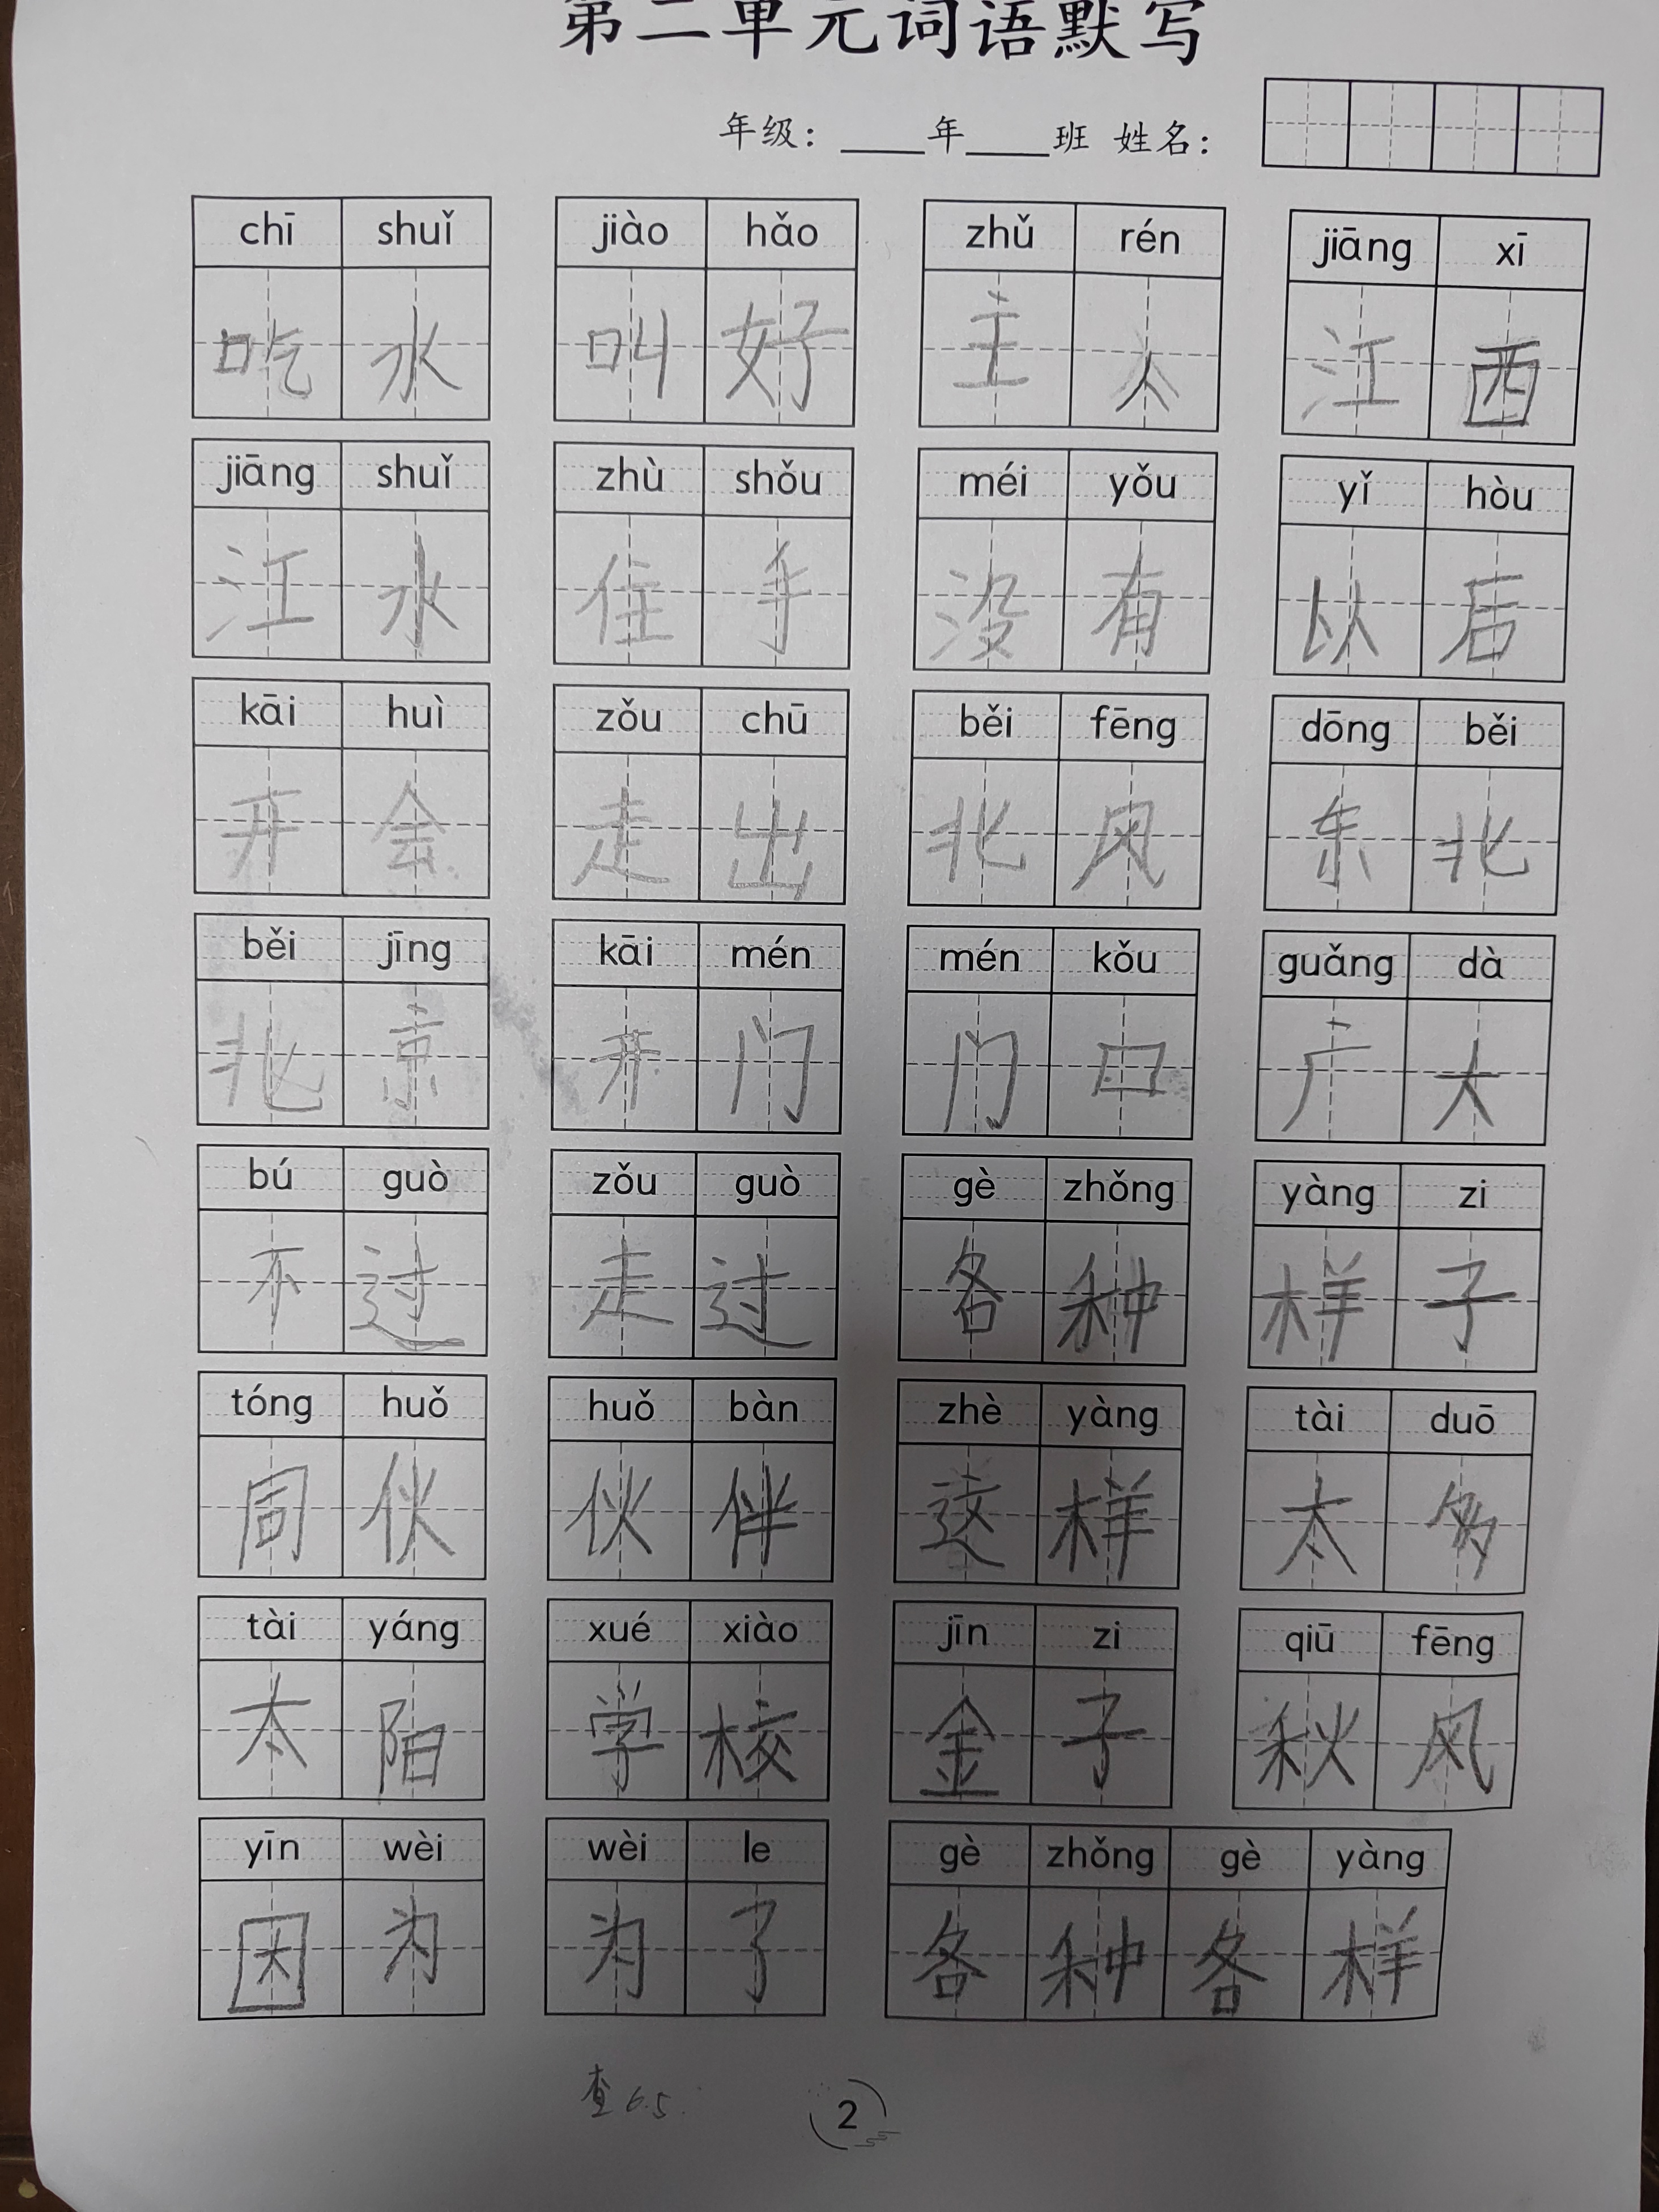 第二单元词语默写
年级：____年____班 姓名：
chī shuǐ jiào hǎo zhǔ rén jiāng xī
吃水 叫好 主人 江西
jiāng shuǐ zhù shǒu méi yǒu yǐ hòu
江水 住手 没有 以后
kāi huì zǒu chū běi fēng dōng běi
开会 走出 北风 东北
běi jīng kāi mén mén kǒu guǎng dà
北京 开门 门口 广大
bú guò zǒu guò gè zhǒng yàng zi
不过 走过 各种 样子
tóng huǒ huǒ bàn zhè yàng tài duō
同伙 伙伴 这样 太多
tài yáng xué xiào jīn zi qiū fēng
太阳 学校 金子 秋风
yīn wèi wèi le gè zhǒng gè yàng
因为 为了 各种各样
查 6.5
2